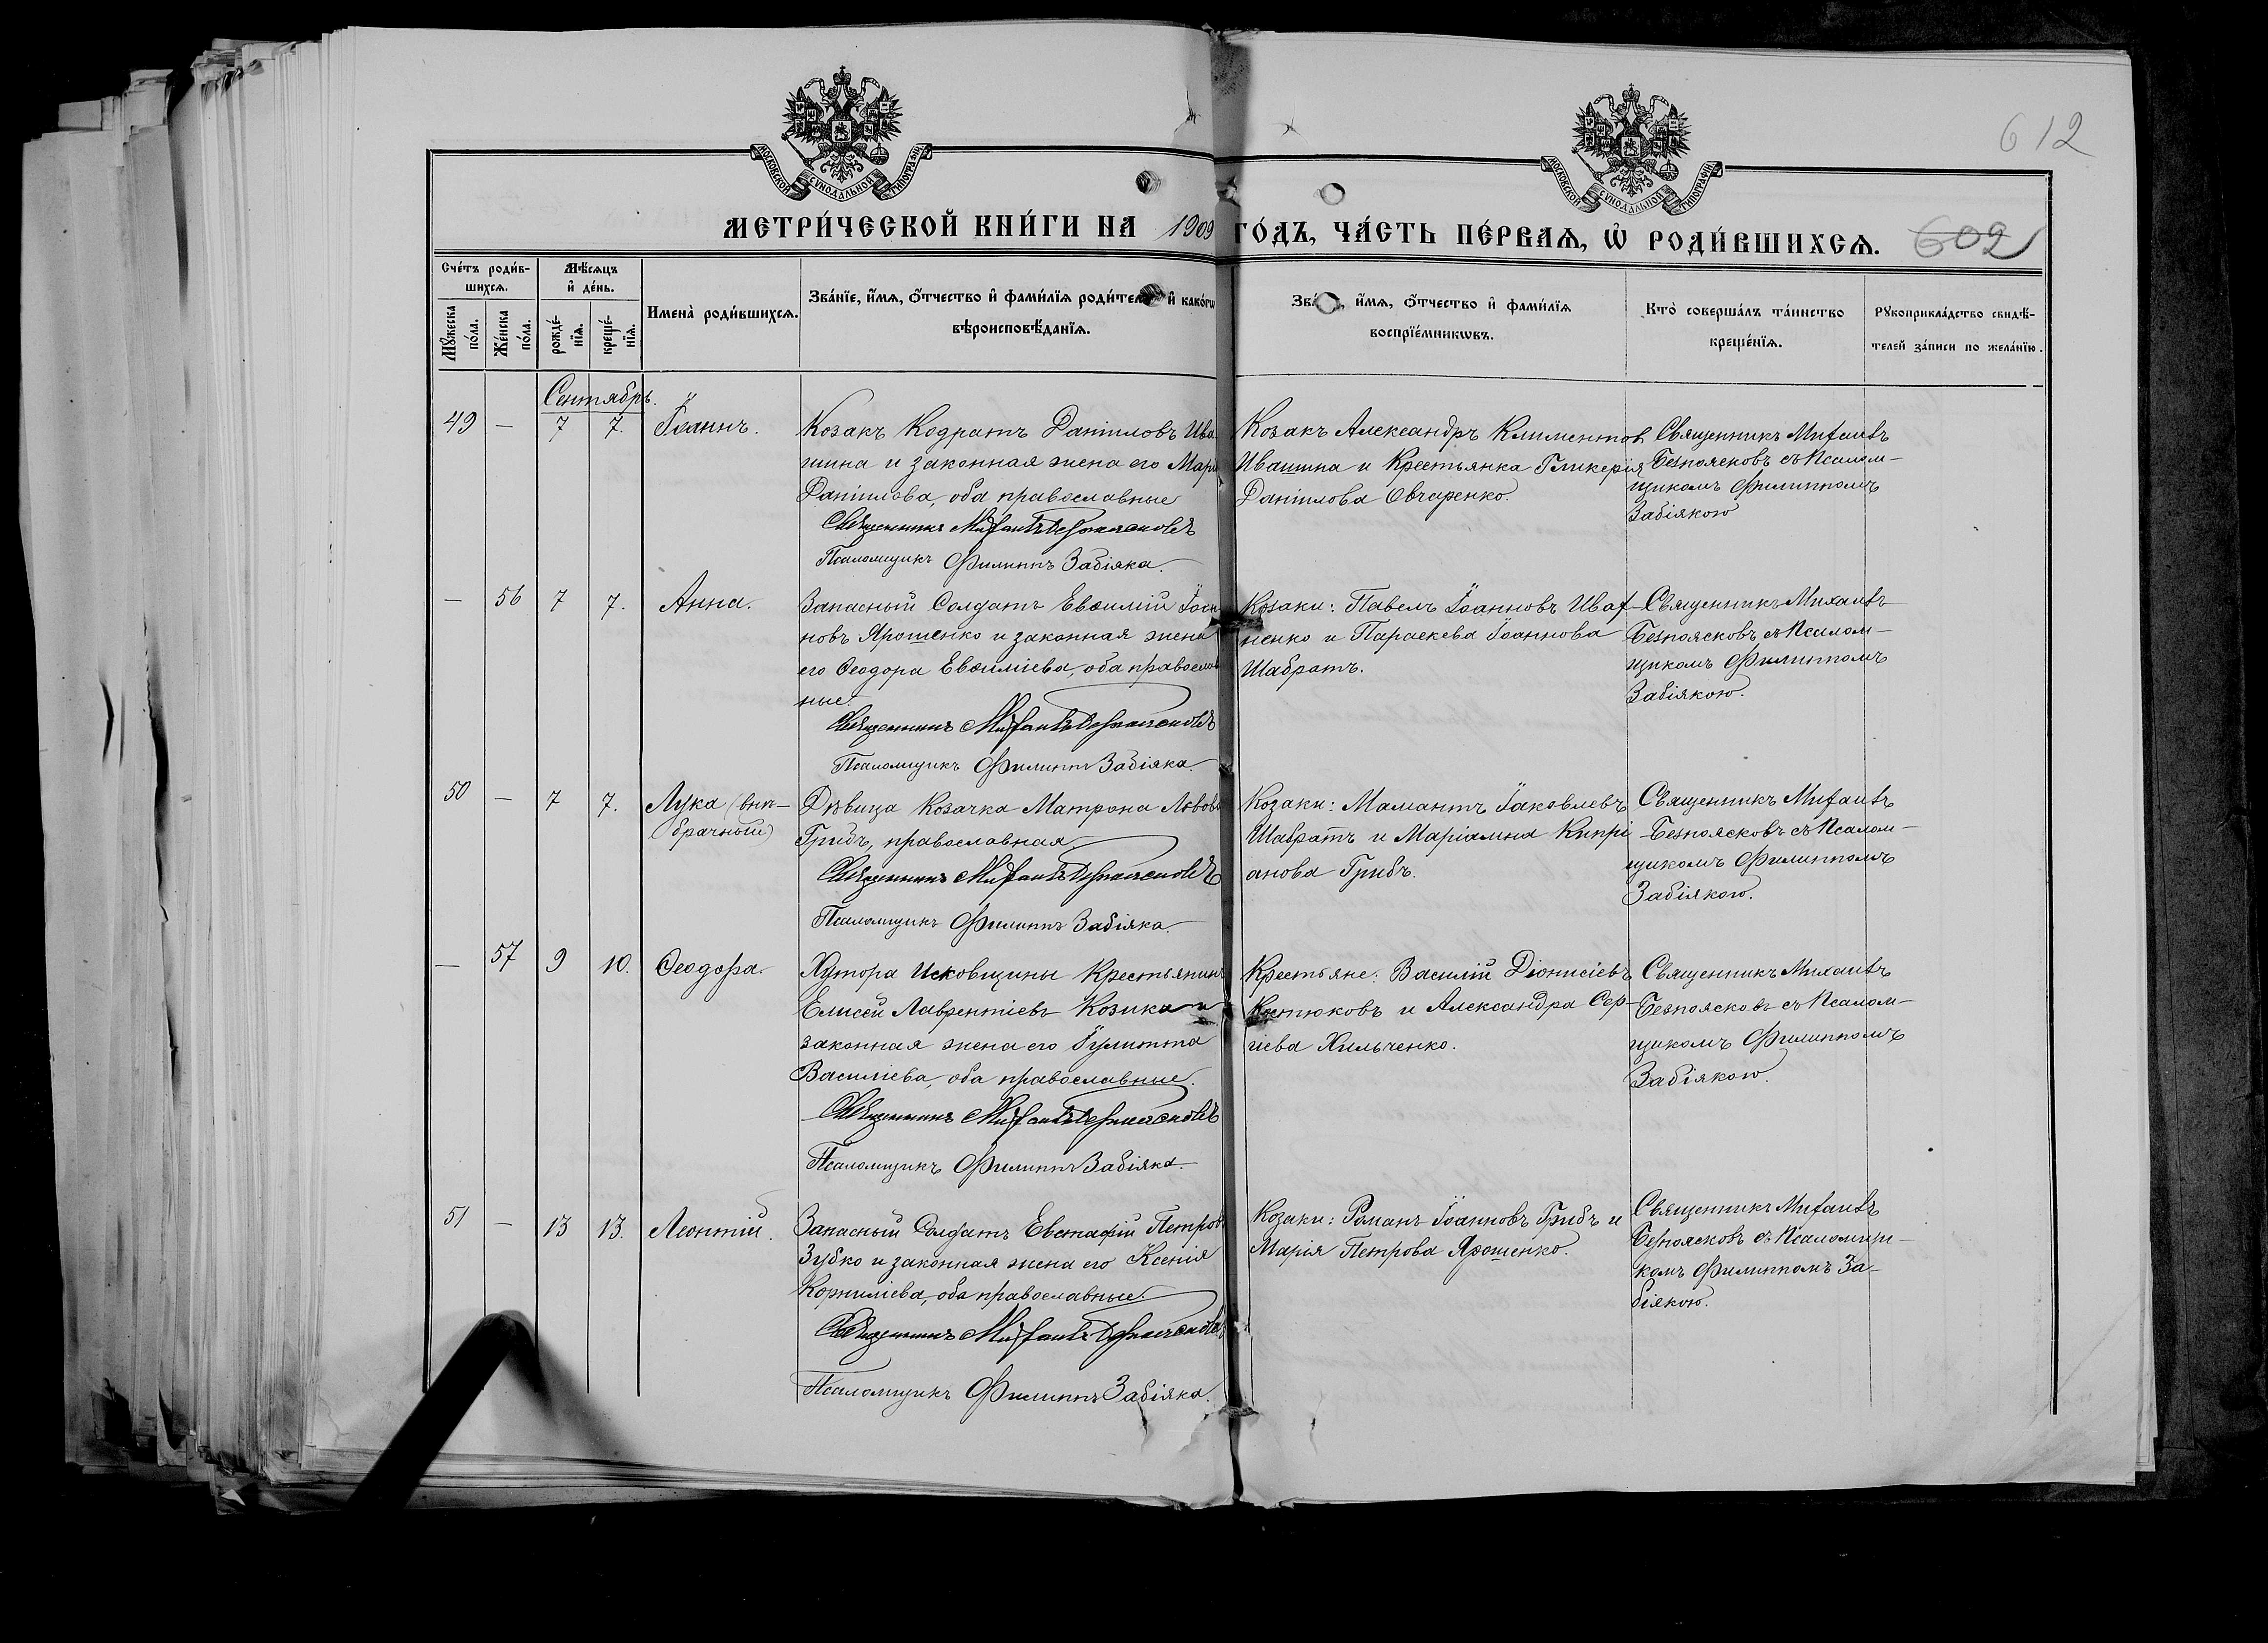 612
МОСКОВСКОЙ СѴНОДАЛЬНОЙ ТИПОГРАФІИ
МОСКОВСКОЙ СѴНОДАЛЬНОЙ ТИПОГРАФІИ
МЕТРИ́ЧЕСКОЙ КНИ́ГИ НА 1909 ГО́ДЪ, ЧА́СТЬ ПЕ́РВАѦ, Ѡ҆ РОДИ́ВШИХСѦ. 602
Сче́тъ роди́в-
шихсѧ.
Мꙋ́жеска по́ла.
Же́нска по́ла.
Мѣ́сѧцъ и҆ де́нь.
рожде́-
нїѧ.
креще́-
нїѧ.
Имена̀ роди́вшихсѧ.
Зва́нїе, и҆́мѧ, ѻ҆́тчество и҆ фами́лїѧ роди́тел и҆ како́гѡ
вѣроисповѣ́данїѧ.
Зв , и҆́мѧ, ѻ҆́тчество и҆ фами́лїѧ
воспрїе́мникѡвъ.
Кто̀ соверша́лъ та́инство
креще́нїѧ.
Рꙋкоприкла́дство свидѣ́-
телей за́писи по жела́нїю.
Сентябрь.
49 — 7 7. Іоаннъ.
Козакъ Кодратъ Даніиловъ Ива
шина и законная жена его Мари
Даніилова, оба православные
Священникъ Михаилъ Безпоясковъ
Псаломщикъ Филиппъ Забіяка.
Козакъ Александръ Климентов
Ивашина и Крестьянка Гликерія
Даніилова Овчаренко.
Священникъ Михаилъ
Безпоясковъ съ Псалом-
щикомъ Филиппомъ
Забіякою
— 56 7 7. Анна.
Запасный Солдатъ Евѳимій Іоан
новъ Ярошенко и законная жена
его Ѳеодора Евѳиміева, оба православ
ные.
Священникъ Михаилъ Безпоясковъ
Псаломщикъ Филиппъ Забіяка.
Козаки: Павелъ Іоанновъ Ивах-
ненко и Параскева Іоаннова
Шабратъ.
Священникъ Михаилъ
Безпоясковъ съ Псалом-
щикомъ Филиппомъ
Забіякою.
50 — 7 7. Лука (внѣ-
брачный)
Дѣвица Козачка Матрона Львова
Грибъ, православная.
Священникъ Михаилъ Безпоясковъ
Псаломщикъ Филиппъ Забіяка.
Козаки: Мамантъ Іаковлевъ
Шабратъ и Маріамна Кипрі
анова Грибъ.
Священникъ Михаилъ
Безпоясковъ съ Псалом-
щикомъ Филиппомъ
Забіякою.
— 57 9 10. Ѳеодора.
Хутора Исковщины Крестьянинъ
Елисей Лаврентіевъ Козика и
законная жена его Іулитта
Василіева, оба православные.
Священникъ Михаилъ Безпоясковъ
Псаломщикъ Филиппъ Забіяка.
Крестьяне: Василій Діонисіевъ
Костюковъ и Александра Сер-
гіева Хильченко.
Священникъ Михаилъ
Безпоясковъ съ Псалом-
щикомъ Филиппомъ
Забіякою.
51 — 13 13. Леонтій.
Запасный Солдатъ Евстафій Петров
Зубко и законная жена его Ксенія
Корниліева, оба православные.
Священникъ Михаилъ Безпоясковъ
Псаломщикъ Филиппъ Забіяка.
Козаки: Романъ Іоанновъ Грибъ и
Марія Петрова Ярошенко.
Священникъ Михаилъ
Безпоясковъ съ Псаломщи-
комъ Филиппомъ За-
біякою.